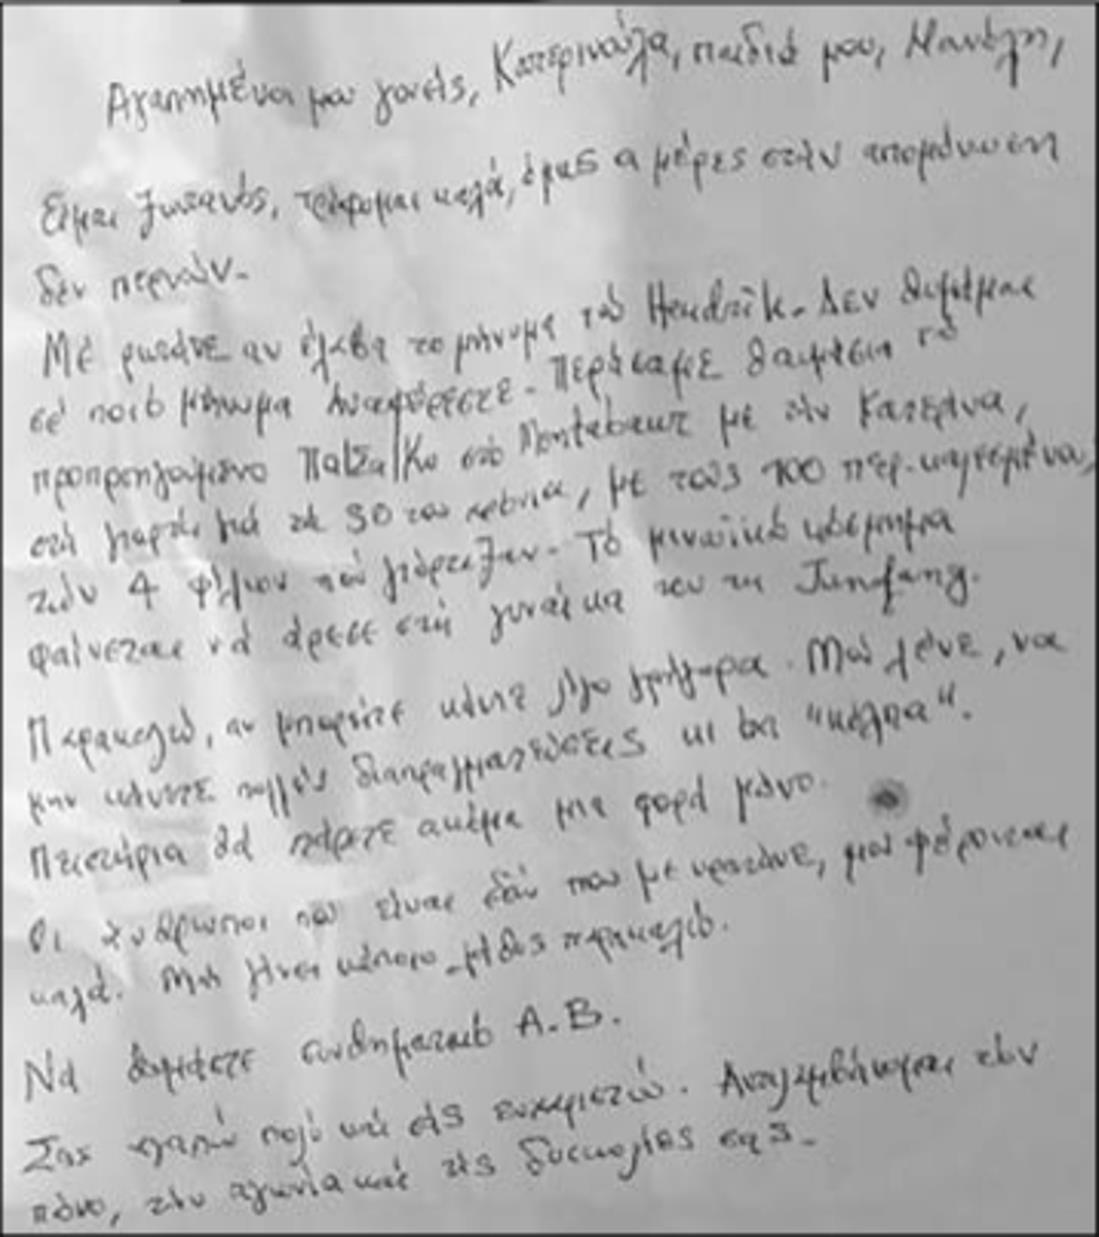 Αγαπημένοι μου γονείς, Κατερινούλα, παιδιά μου, Μανόλη,
Είμαι ζωτανός, τρέφομαι καλά, όμως οι μέρες στὴν απομόνωση
δεν περνούν.
Μὲ ρωτάνε αν έλαβα το μήνυμα τοῦ Hendrik. Δεν θυμάμαι
σὲ ποιό μήνυμα ἀναφέρεστε. Περάσαμε θαυμάσια τὸ
προπροηγούμενο Πάσχα στὸ Montabaur με τὴν Κατερίνα,
στὴ γιορτὴ γιά τὰ 50 του χρόνια, με τοὺς 100 περ. καλεσμένους
τῶν 4 φίλων ποὺ γιόρταζαν. Τὸ μινωϊκό κόσμημα
φαίνεται νὰ άρεσε στὴ γυναίκα του τη Junfang.
Παρακαλῶ, αν μπορείτε κάντε λίγο γρήγορα. Μοῦ λένε, να
μην κάνετε πολλές διαπραγματεύσεις κι όχι "κόλπα".
Πειστήρια θὰ πάρετε ακόμα μια φορά μόνο.
Οι άνθρωποι ποὺ είναι ἐδῶ που με κρατάνε, μου φέρονται
καλά. Μὴ γίνει κάποιο λάθος παρακαλῶ.
Νὰ θυμάστε συνθηματικό Α.Β.
Σας αγαπῶ πολύ καὶ σᾶς ευχαριστῶ. Αντιλαμβάνομαι τὸν
πόνο, τὴν αγωνία καὶ τὶς δυσκολίες σας.